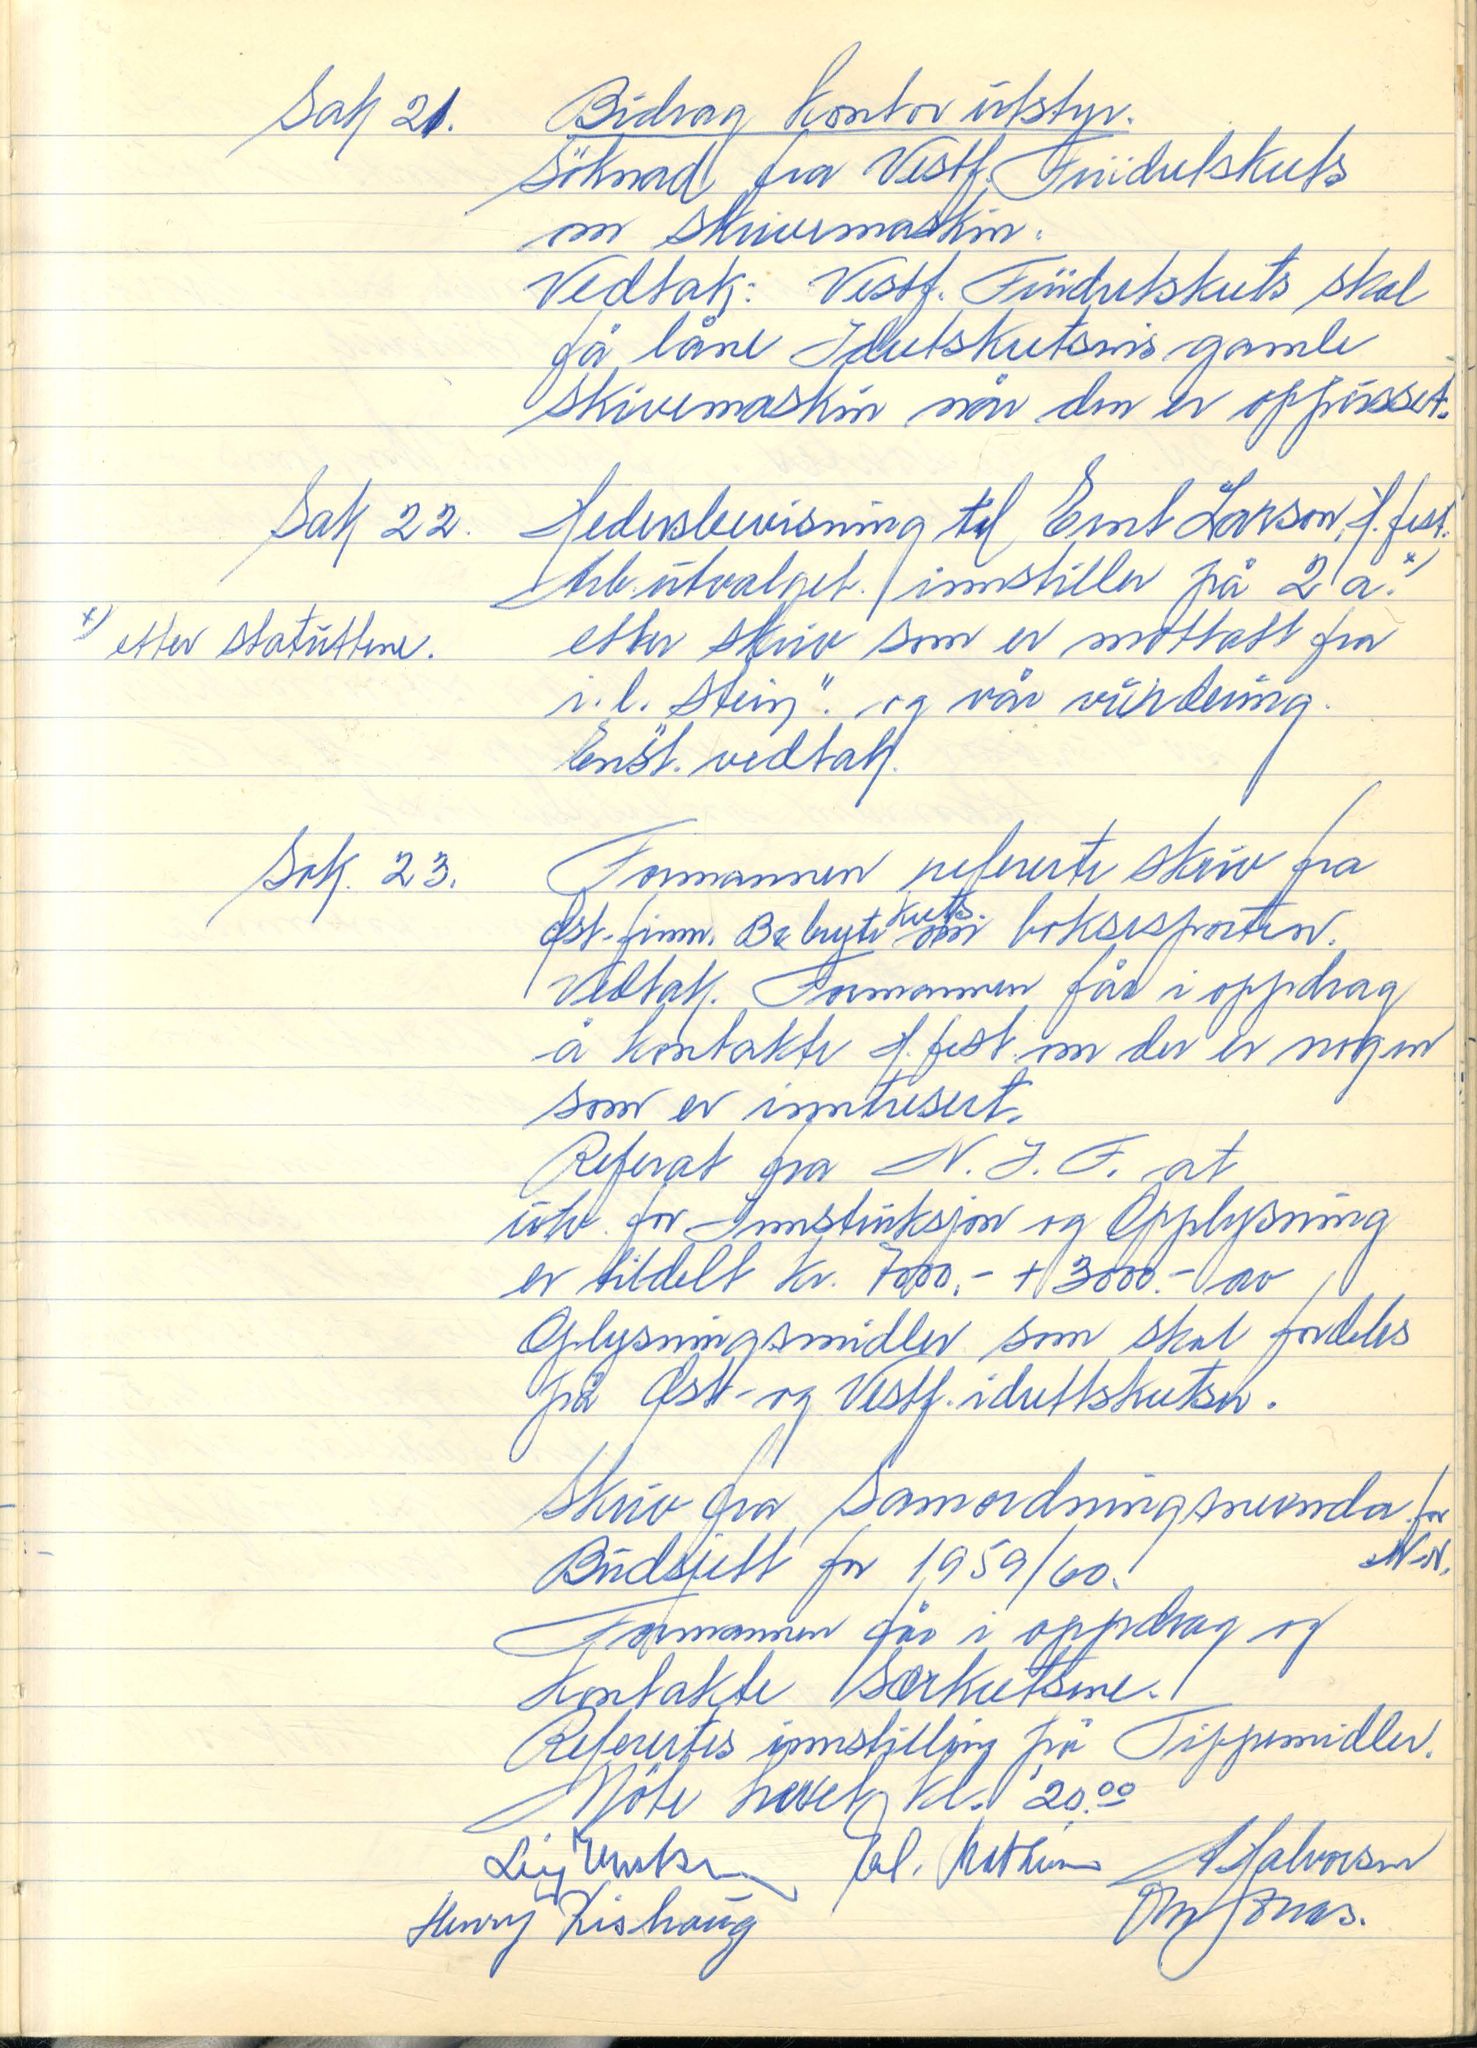 Sak 21. Bidrag kontor utstyr.
Söknad fra Vestf. Friidretskrets
om skrivemaskin.
Vedtak: Vestf. Friidretskrets skal
få låne Idretskretsens gamle
skrivemaskin når den er oppusset.
Sak 22. Hedersbevisning til Emil Larson, H.fest.
Arb.utvalget. innstiller på 2 a. x)
x) etter statuttene.
etter skriv som er mottatt fra
i.l. Stein". og vår vurdering.
Enst. vedtak.
Sak. 23. Formannen refererte skriv fra
Øst-finnm. Bryte krets. om boksesporten.
Vedtak. Formannen får i oppdrag
å kontakte H.fest. om der er nogen
som er inntresert.
Referat fra N. I. F. at
utv. for Innstruksjon og Opplysning
er tildelt kr. 7000.- + 3000.- av
Oplysningsmidler som skal fordeles
på Øst- og Vestf. idrettskretser.
Skriv fra Samordningsnevnda for
N-N.
Budsjett for 1959/60.
Formannen får i oppdrag og
kontakte Særkretsene.
Refertes innstilling på Tippemidler.
Möte hevet kl. 20.00
A Halvorsen
Henry Kishaug